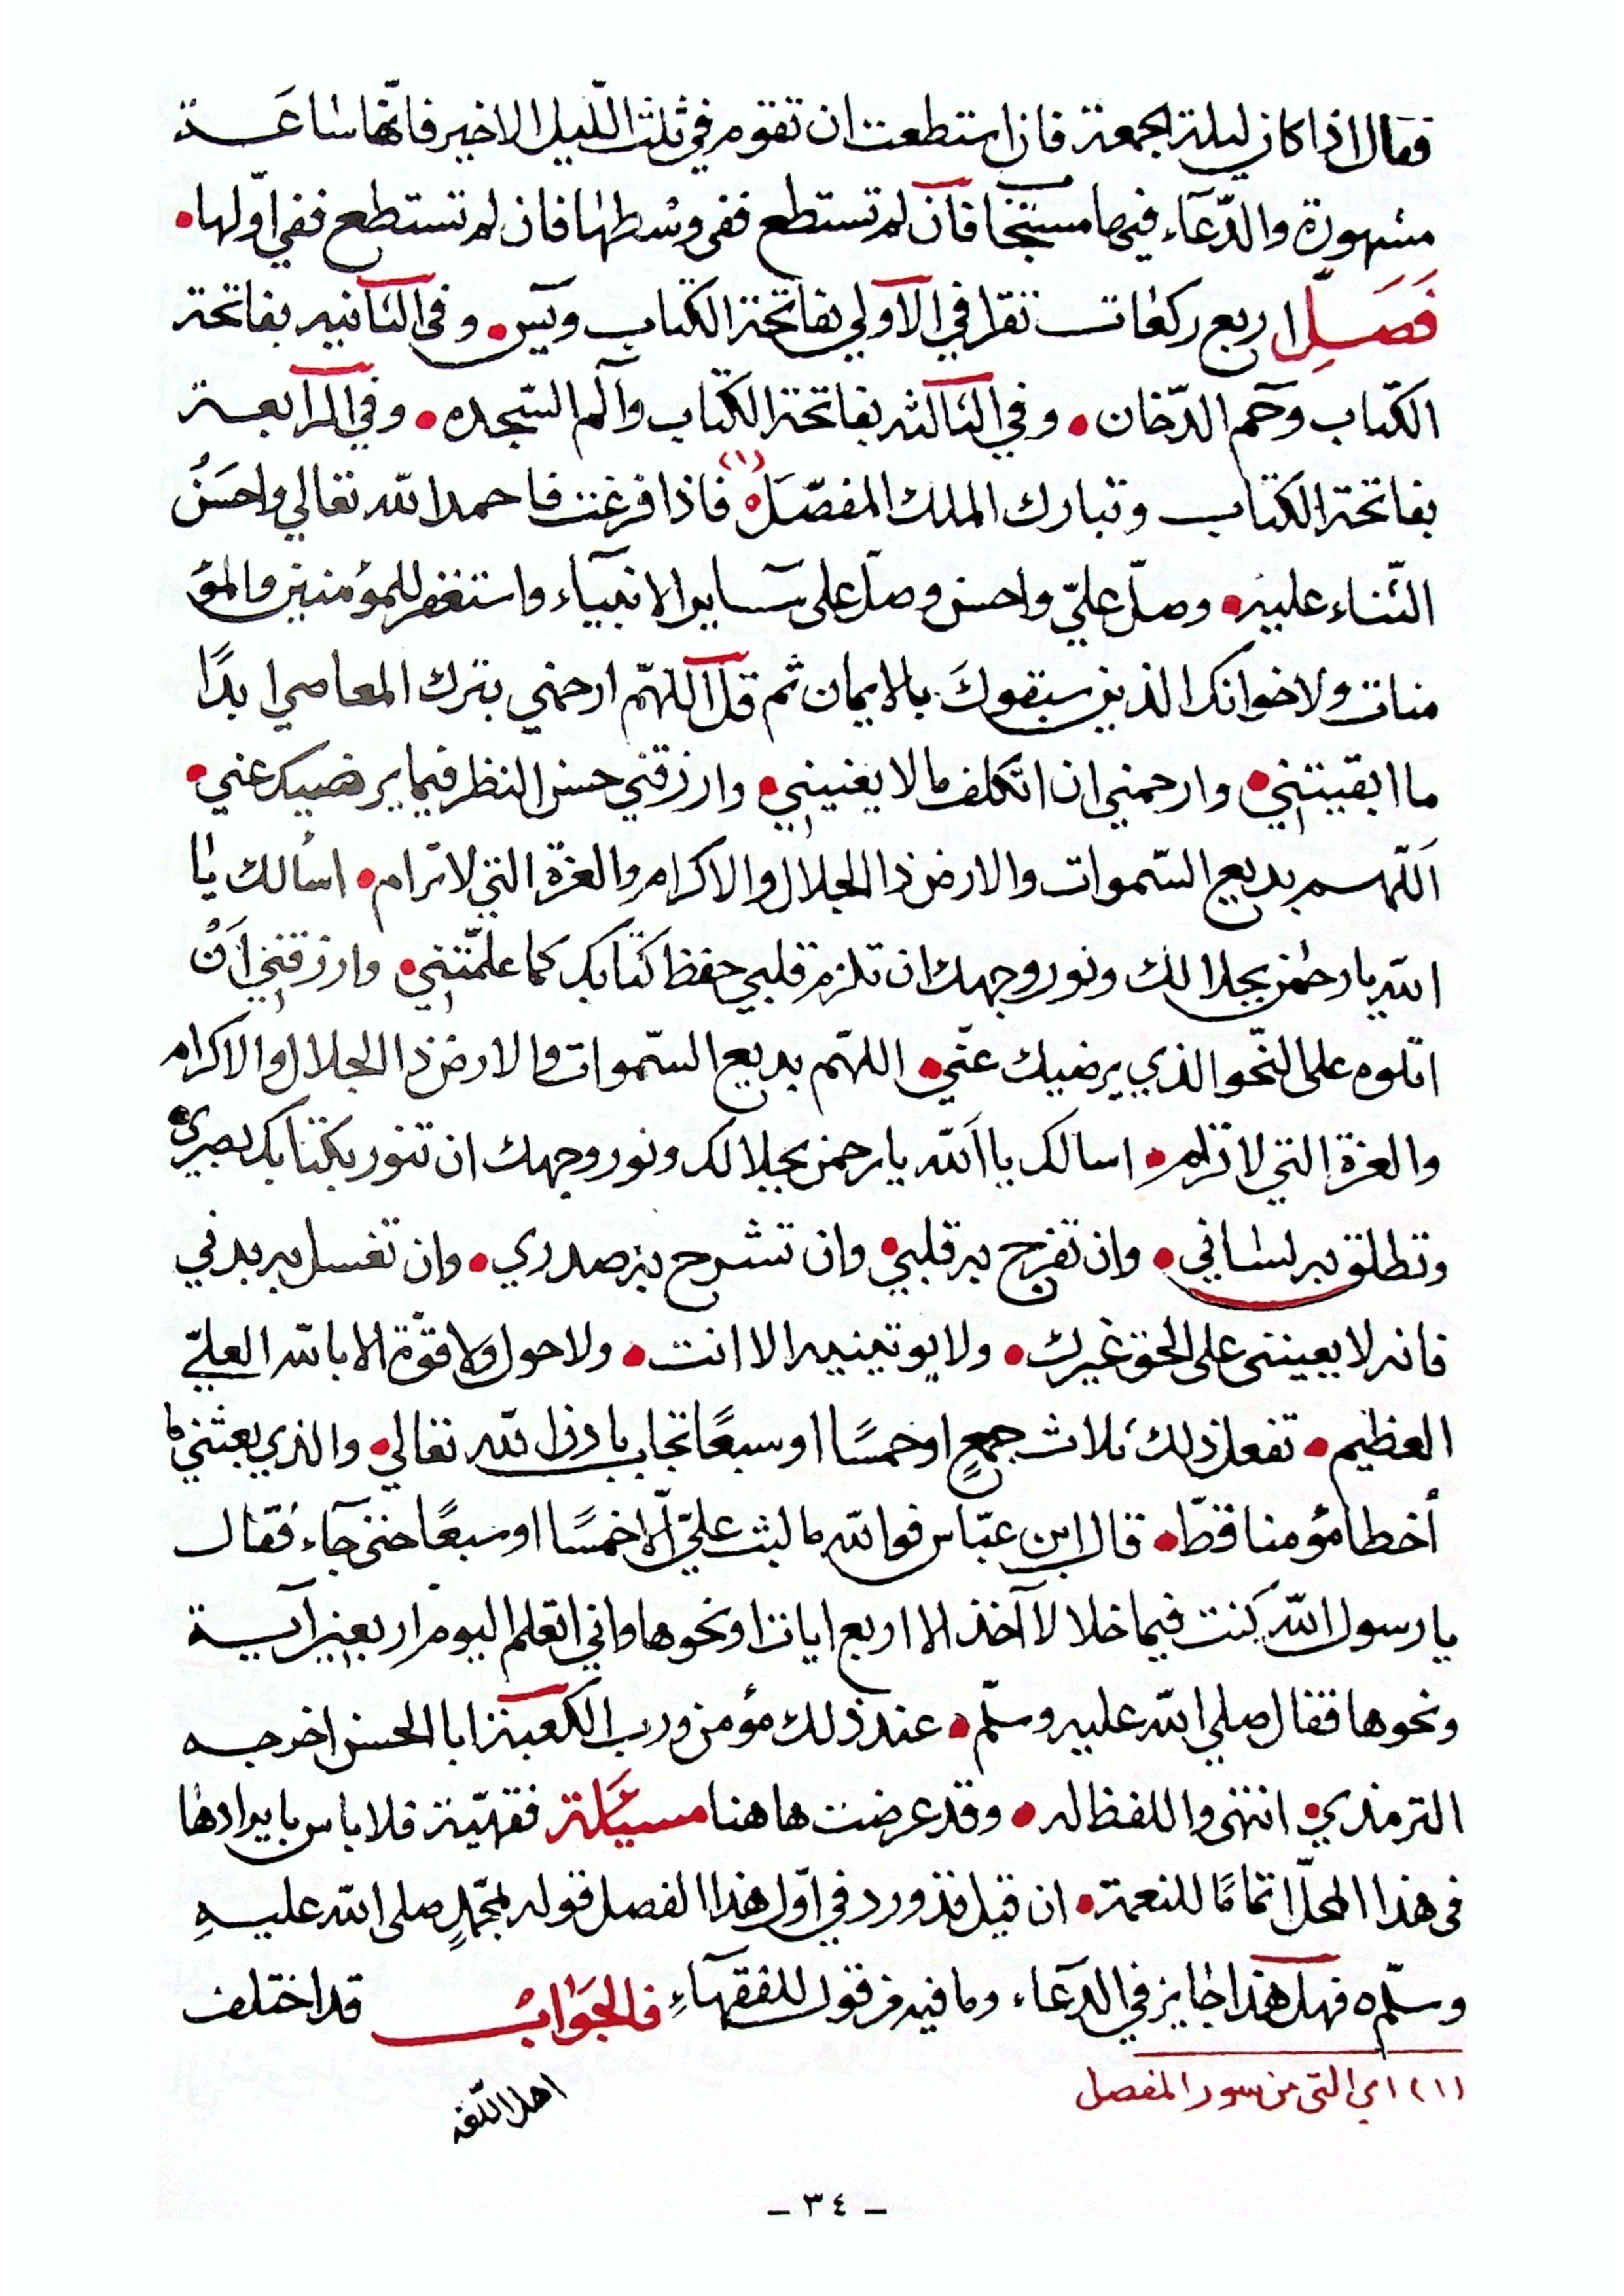 فقال اذا كان ليلة الجمعة فان استطعت ان تقوم في ثلث اللّيل الاخير فانّها سٰاعَة
مشهودة والدّعآء فيها مستجٰا فان لم تستطع ففى وسْطهٰا فان لم تستطع ففي اوّلها •
فَصَلِّ اربع ركعٰات تقرا في الآولي بفاتحة الكتاب ويٓس • وفى الثٰانيه بفاتحة
الكتاب وحٓم الدّخان • وفي الثٰالثه بفاتحة الكتاب وآلم السّجده • وفي الرابعة
بفاتحة الكتاب وتبارك الملك المفصّلَ (١) فاذا فرغت فاحمد الله تعالي واحسَنُ
الثّناء عليه • وصلّ عليّ واحسن وصلّ على سٓاير الانبيآء واستغفر للمؤمنين والمؤ
منات ولاخوانك الذين سبقوكَ بالايمان ثم قل اللهمّ ارحمني بترك المعاصي ابدًا
ما ابقيتني • وارحمني ان اتكلف ما لا يعنيني • وارزقني حسن النظر فيما يرضيك عني •
اَللّهم بديع السّموات والارض ذا الجلال والاكرام والعزة التي لا ترام • اسألك يٰا
الله يا رحمٰن بجلالك ونور وجهك ان تلزم قلبي حفظ كتٰابك كما علّمتني • وارزقني اَنْ
اتلوه على النّحو الذي يرضيك عنّي • اللهمّ بديع السّموات والارض ذا الجلال والاكرام
والعزة التي لا ترام • اسالك يا اَلله يا رحمن بجلالك ونور وجهك ان تنور بكتابك بصري •
وتطلق به لسٰاني • وان تفرج به قلبي • وان تشرح به صدري • وان تغسل به بدني
فانه لا يعينني على الحق غيرك • ولا يوتينيه الا انت • ولا حول ولا قوّة الا بالله العليّ
العظيم • تفعل ذلك ثلاث جمعٍ او خمسًا او سبعًا تجاب باذن الله تعالي • والذي بعثني ما
أخطا مؤمنا قطّ • قال ابن عبّاس فوالله ما لبث عليّ الّا خمسًا او سبعًا حتى جآء فقال
يا رسول الله كنت فيما خلا لا آخذ الا اربع ايات او نحوها واني اتعلم اليوم اربعين آية
ونحوها فقال صلي الله عليه وسلّم • عند ذلك مؤمن ورب الكعبة ابا الحسن اخرجه
الترمذي • انتهى واللفظ له • وقد عرضت هاهنا مسئلة فقهيّة فلا باس بايرادها
فى هذا المحلّ اتمامًا للنعمة • ان قيل قد ورد في اوّل هذا الفصل قوله لمحمّدٍ صلى الله عليهِ
وسلّم ه فهل هذا جايز في الدعآء وما فيه من قول للفقهآءِ فالجَوٰابُ قد اختلف
(١) اي التى من سور المفصل
اهل اللّغة
- ٣٤ -